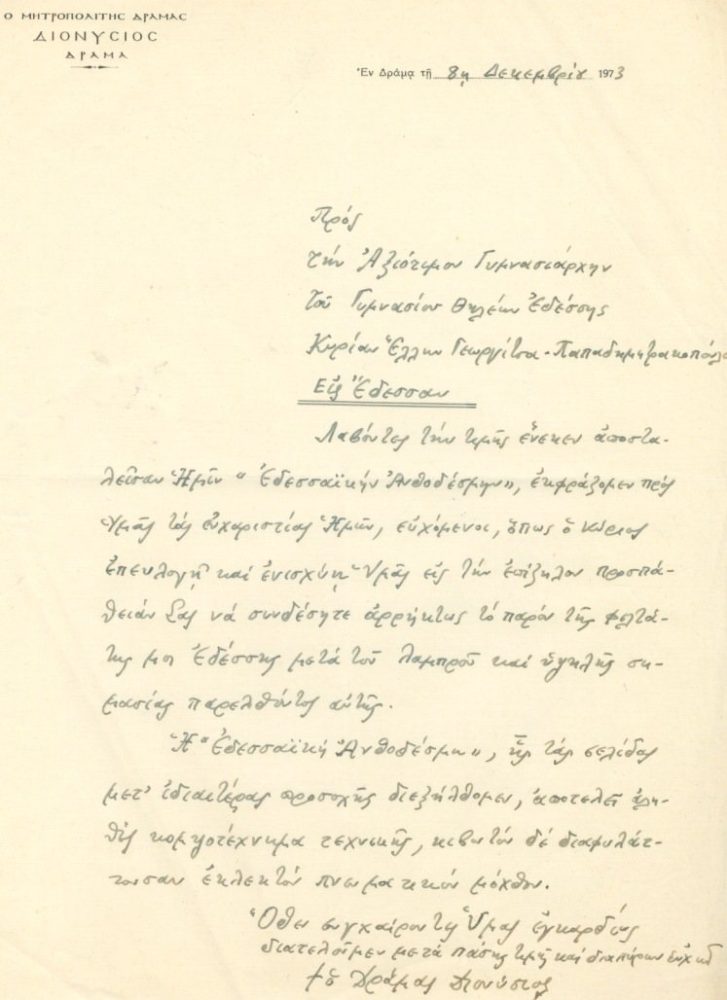 Ο ΜΗΤΡΟΠΟΛΙΤΗΣ ΔΡΑΜΑΣ
ΔΙΟΝΥΣΙΟΣ
ΔΡΑΜΑ
Ἐν Δράμᾳ τῇ 8ῃ Δεκεμβρίου 1973
Πρός
τήν Ἀξιότιμον Γυμνασιάρχην
τοῦ Γυμνασίου Θηλέων Ἐδέσσης
Κυρίαν Ἕλλην Γεωργίτσα-Παπαδημητρακοπούλου
Εἰς Ἔδεσσαν
Λαβόντες τήν τιμῆς ἕνεκεν ἀποστα-
λεῖσαν Ἡμῖν "Ἐδεσσαϊκήν Ἀνθοδέσμην", ἐκφράζομεν πρός
Ὑμᾶς τάς εὐχαριστίας Ἡμῶν, εὐχόμενοι, ὅπως ὁ Κύριος
ἐπευλογῇ καί ἐνισχύῃ Ὑμᾶς εἰς τήν ἐπίζηλον προσπά-
θειάν Σας νά συνδέσητε ἀρρήκτως τό παρόν τῆς φιλτά-
της μοι Ἐδέσσης μετά τοῦ λαμπροῦ καί ὑψηλῆς ση-
μασίας παρελθόντος αὐτῆς.
Ἡ "Ἐδεσσαϊκή Ἀνθοδέσμη", ἧς τάς σελίδας
μετ' ἰδιαιτέρας προσοχῆς διεξήλθομεν, ἀποτελεῖ ἀλη-
θῶς κομψοτέχνημα τεχνικῆς, κιβωτόν δέ διαφυλάτ-
τουσαν ἐκλεκτόν πνευματικόν μόχθον.
Ὅθεν συγχαίροντες Ὑμᾶς ἐγκαρδίως
διατελοῦμεν μετά πάσης τιμῆς καί διαπύρων εὐχῶν
† ὁ Δράμας Διονύσιος